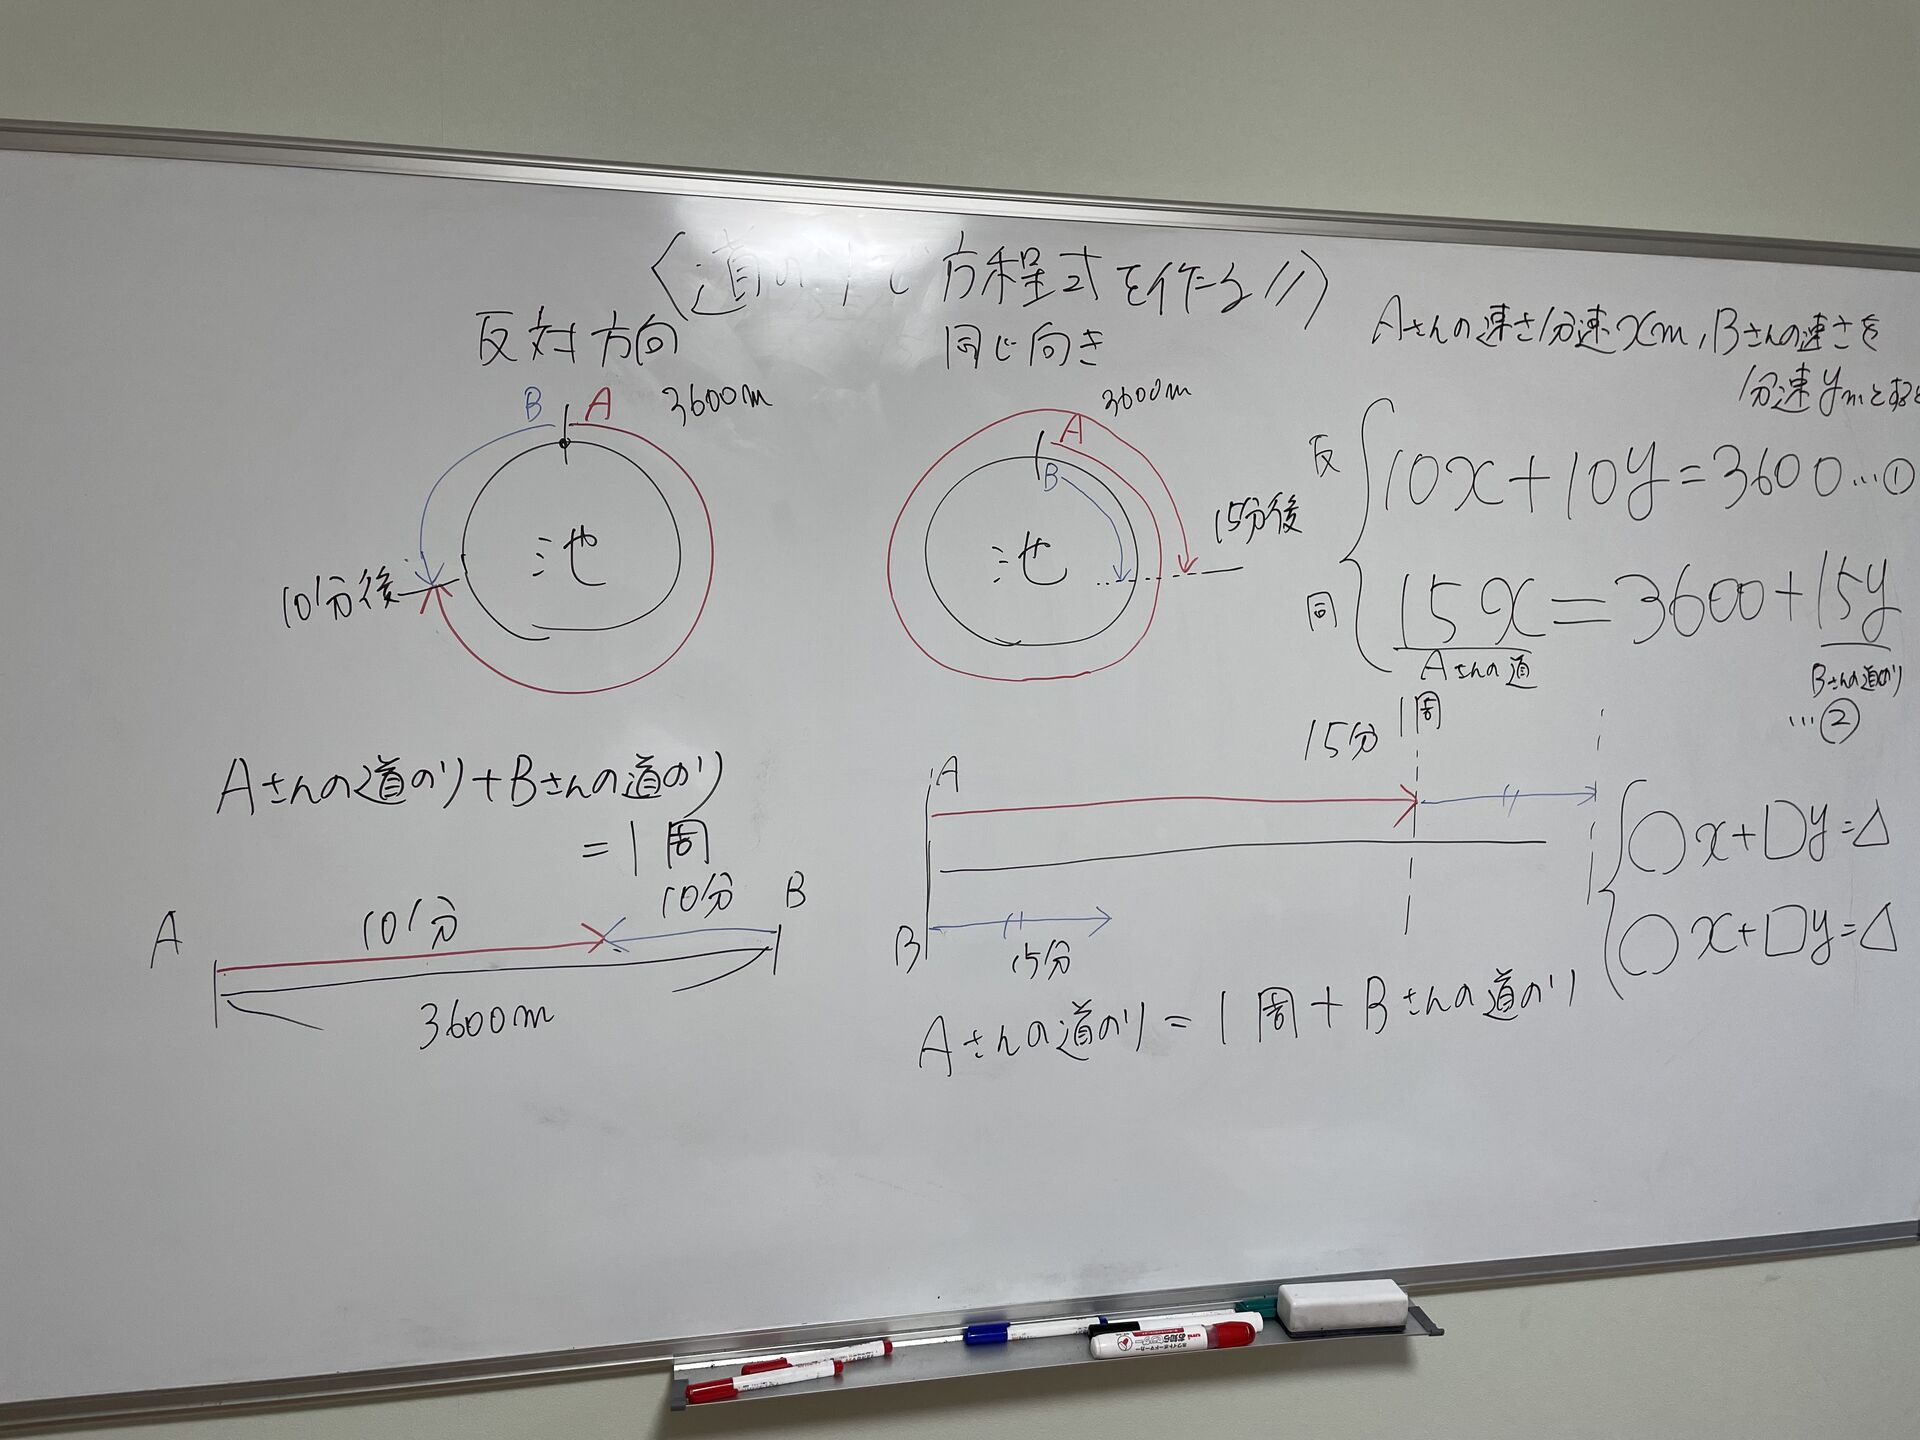 〈道のりで方程式を作る!!〉
反対方向
B A 3600m
池
10分後
Aさんの道のり+Bさんの道のり
=1周
A 10分 10分 B
3600m
同じ向き
3600m
A
B
池
15分後
A 15分 1周
B 15分
Aさんの道のり=1周+Bさんの道のり
Aさんの速さ分速xm,Bさんの速さを
分速ymとすると
反 10x+10y=3600…①
同 15x=3600+15y
Aさんの道 Bさんの道のり
…②
○x+□y=△
○x+□y=△